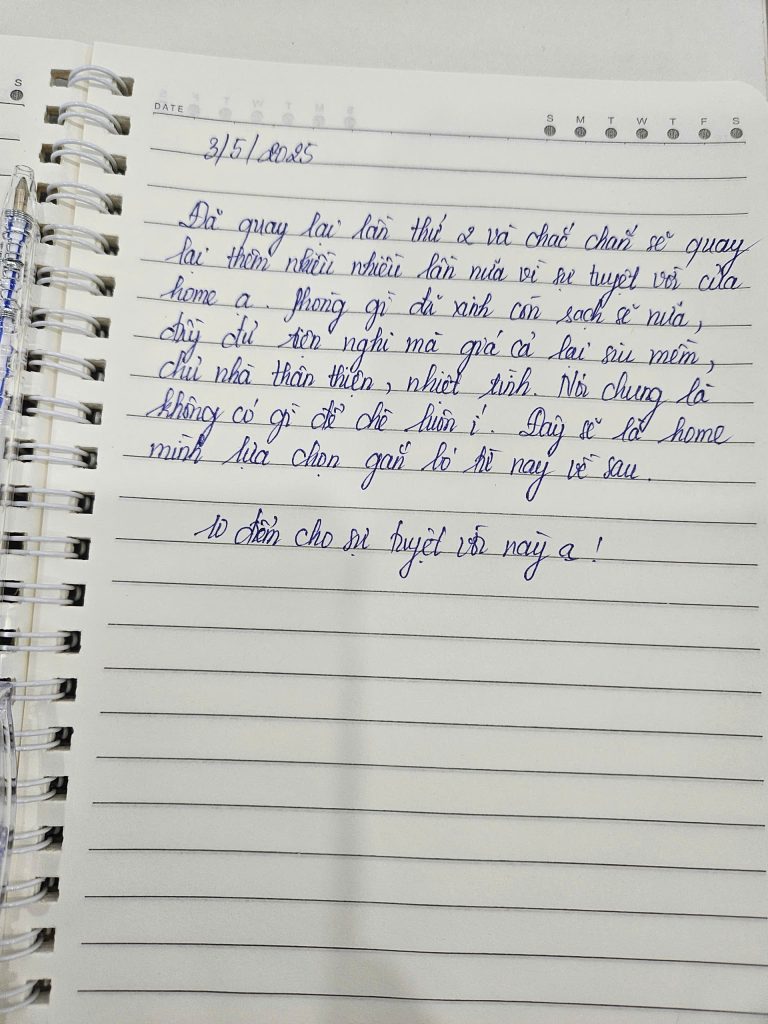 S
DATE
S M T W T F S
3/5/2025
Đã quay lại lần thứ 2 và chắc chắn sẽ quay
lại thêm nhiều nhiều lần nữa vì sự tuyệt vời của
home ạ. Phòng gì đã xinh còn sạch sẽ nữa,
đầy đủ tiện nghi mà giá cả lại siu mềm,
chủ nhà thân thiện, nhiệt tình. Nói chung là
không có gì để chê luôn í. Đây sẽ là home
mình lựa chọn gắn bó từ nay về sau.
10 điểm cho sự tuyệt vời này ạ!